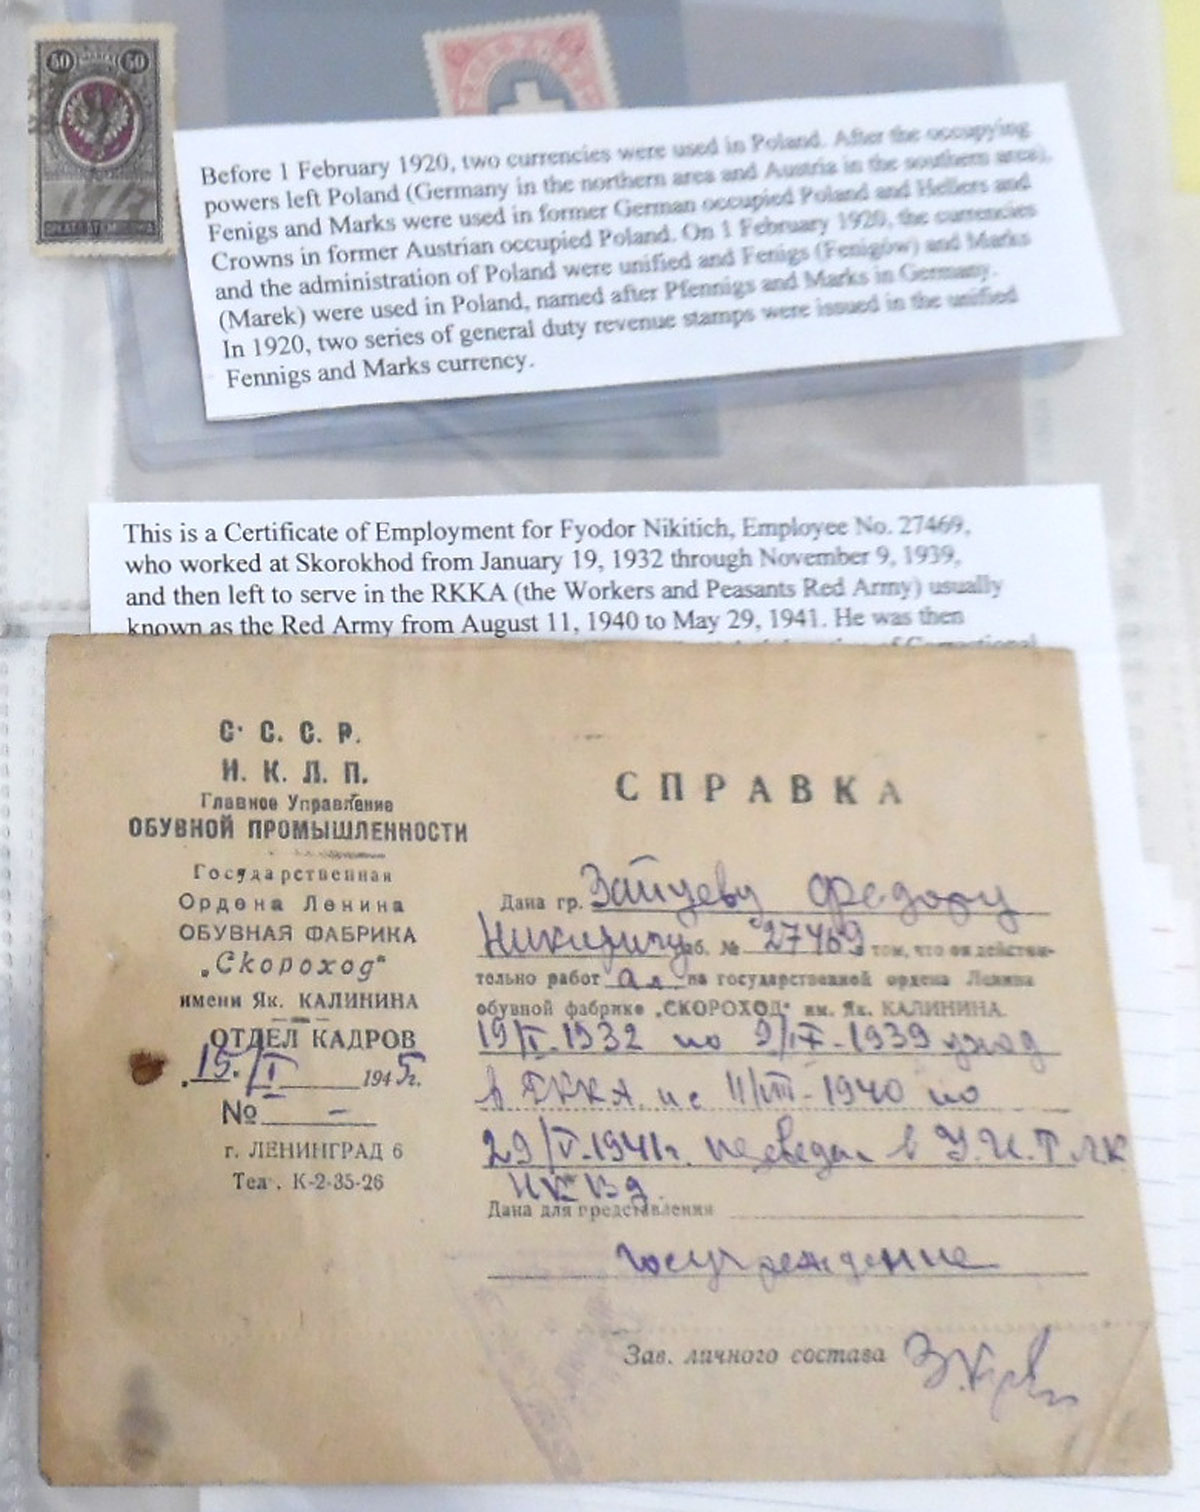 50 50
Before 1 February 1920, two currencies were used in Poland. After the occupying
powers left Poland (Germany in the northern area and Austria in the southern area),
Fenigs and Marks were used in former German occupied Poland and Hellers and
Crowns in former Austrian occupied Poland. On 1 February 1920, the currencies
and the administration of Poland were unified and Fenigs (Fenigów) and Marks
(Marek) were used in Poland, named after Pfennigs and Marks in Germany.
In 1920, two series of general duty revenue stamps were issued in the unified
Fennigs and Marks currency.
This is a Certificate of Employment for Fyodor Nikitich, Employee No. 27469,
who worked at Skorokhod from January 19, 1932 through November 9, 1939,
and then left to serve in the RKKA (the Workers and Peasants Red Army) usually
known as the Red Army from August 11, 1940 to May 29, 1941. He was then
С. С. С. Р.
Н. К. Л. П.
Главное Управление
ОБУВНОЙ ПРОМЫШЛЕННОСТИ
Государственная
Ордена Ленина
ОБУВНАЯ ФАБРИКА
„Скороход“
имени Як. КАЛИНИНА
ОТДЕЛ КАДРОВ
15/I 1945г.
№ –
г. ЛЕНИНГРАД 6
Тел. К-2-35-26
СПРАВКА
Дана гр. Зайцеву Федору
Никитичу раб. № 27469 том, что он действи-
тельно работал на государственной ордена Ленина
обувной фабрике „СКОРОХОД“ им. Як. КАЛИНИНА.
19/I-1932 по 9/IX-1939 уход
в РККА и с 11/VIII-1940 по
29/V-1941г. переведен в У.И.Т.Л.К
НКВД.
Дана для представления
госучреждение
Зав. личного состава